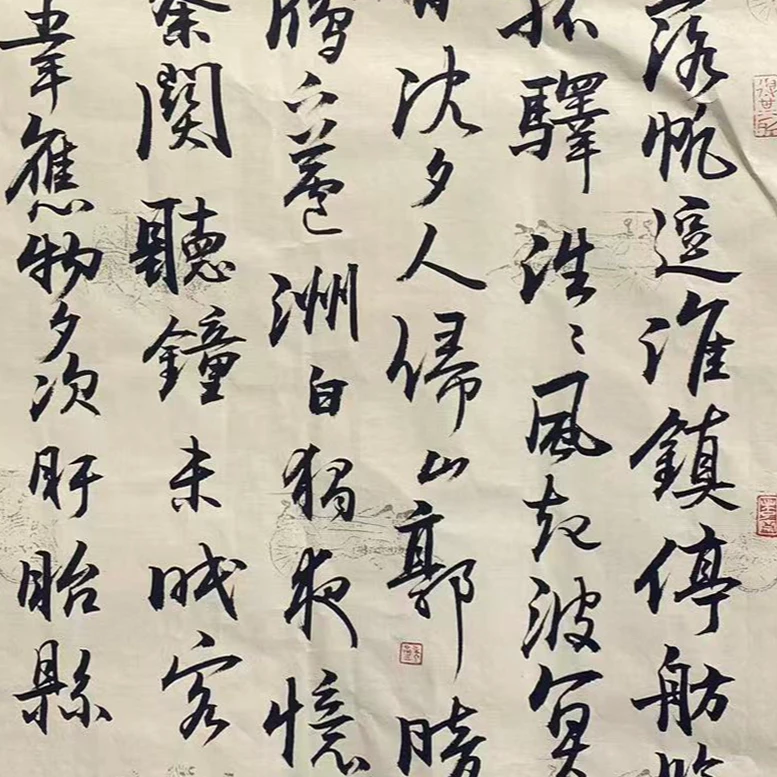 落帆逗淮鎮停舫臨
孤驛浩〻風起波冥
沈夕人歸山郭暗
鴈下蘆洲白獨夜憶
秦關聽鐘未眠客
韋應物夕次盱眙縣